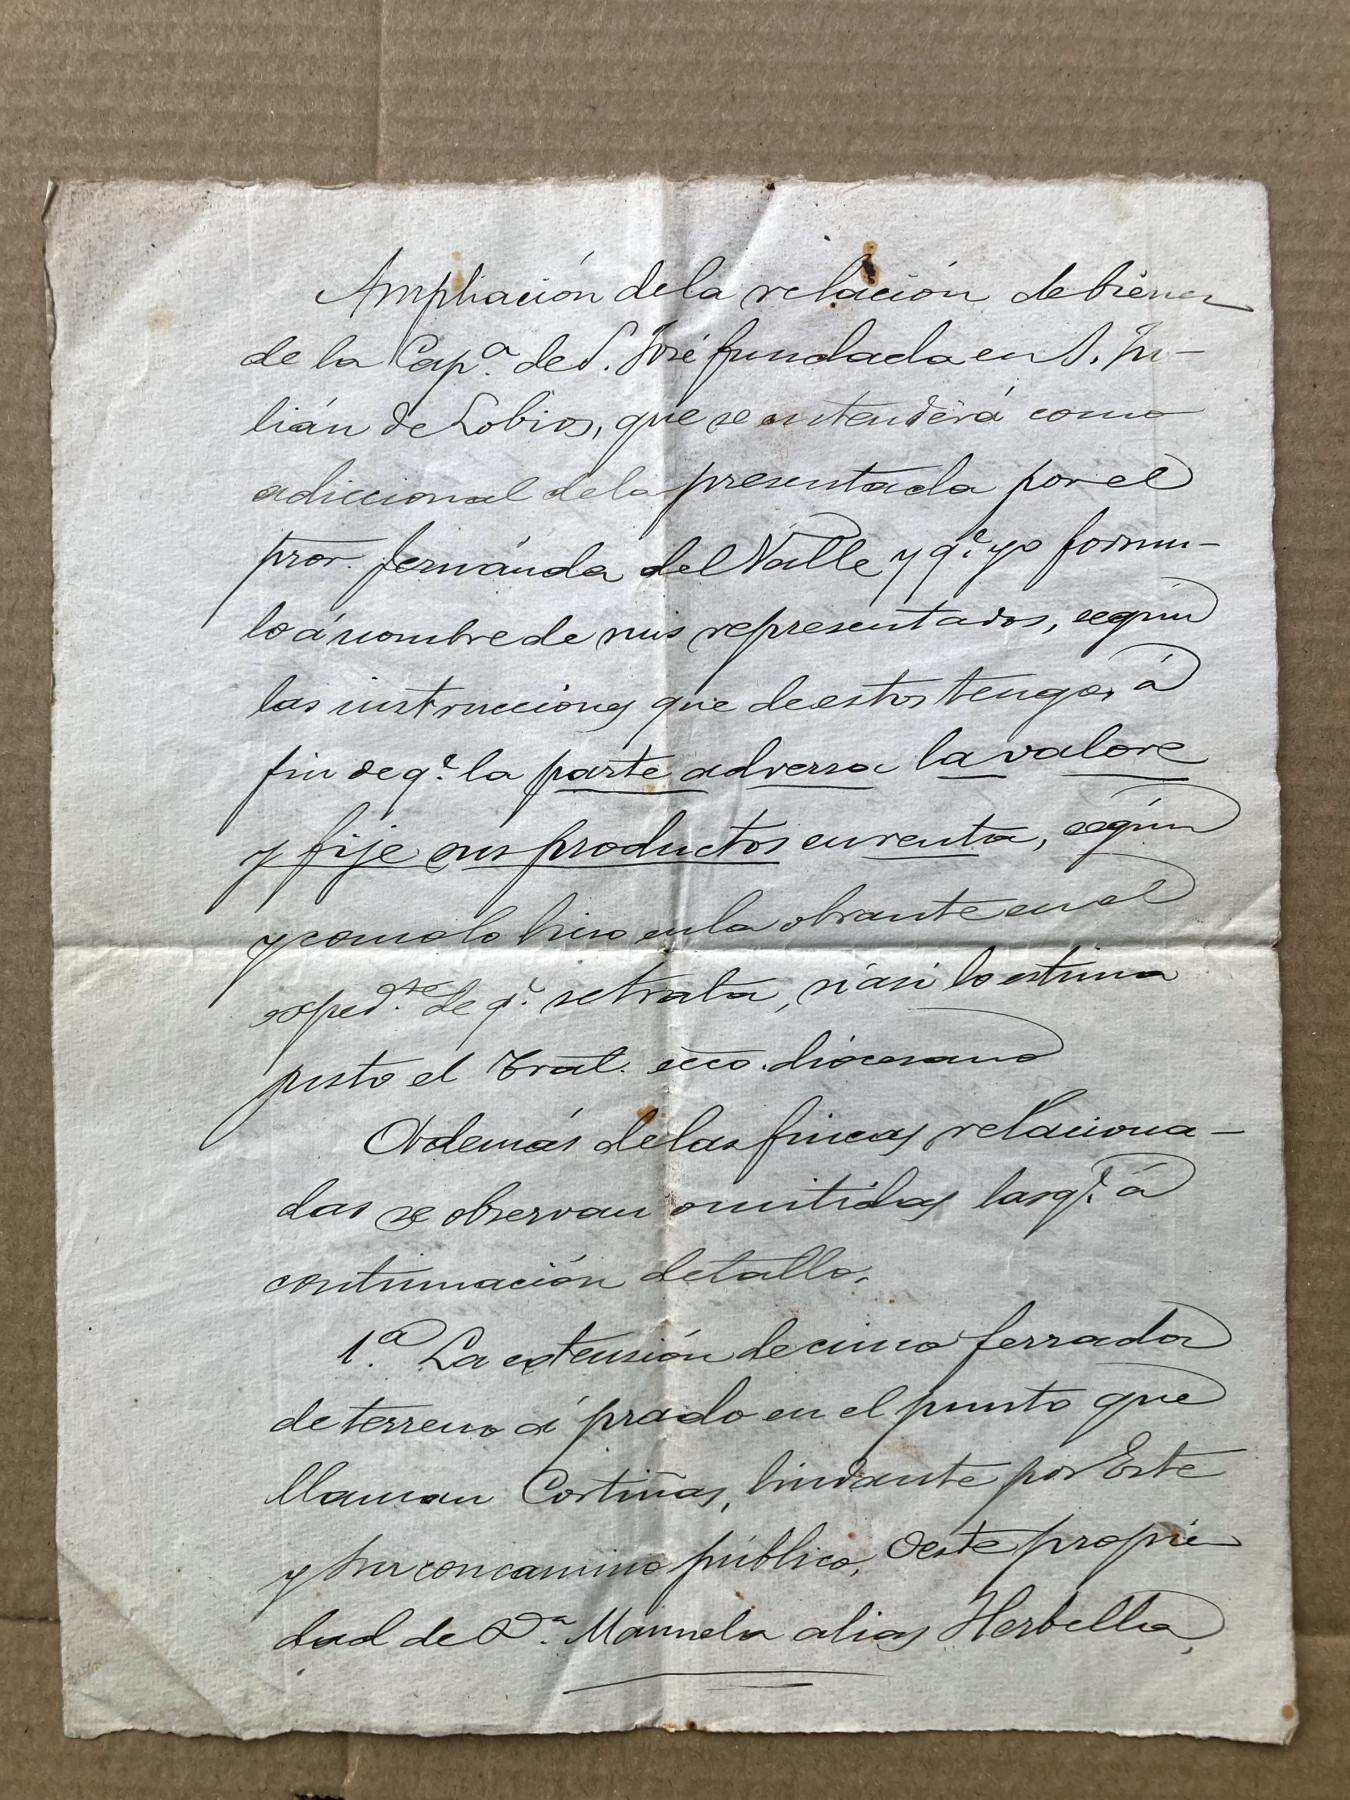 Ampliación de la relación de bienes
de la Cap.ª de S. José fundada en S. Ju-
lián de Lobios, que se entenderá como
adiccional de la presentada por el
pror. Fernández del Valle y q.e yo formu-
lo á nombre de mis representados, según
las instrucciones que de estos tengo, á
fin de q.e la parte adversa la valore
y fije sus productos en renta, según
y como lo hizo en la obrante en el
exped.te de q.e se trata, si así lo estima
justo el Tral. ecco. diocesano
Además de las fincas relaciona-
das se observan omitidas las q.e á
continuación detallo.
1.ª La extensión de cinco ferrados
de terreno á prado en el punto que
llaman Cortiñas, lindante por Este
y Sur con camino público, Oeste propie
dad de D.ª Manuela alias Herbella,